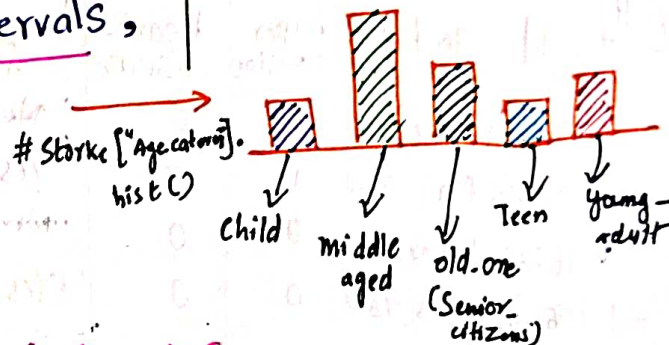 ervals,
# Storke ["Agecatory"].
hist()
Child
middle
aged
old-one
(Senior_
citizens)
Teen
Young-
adult